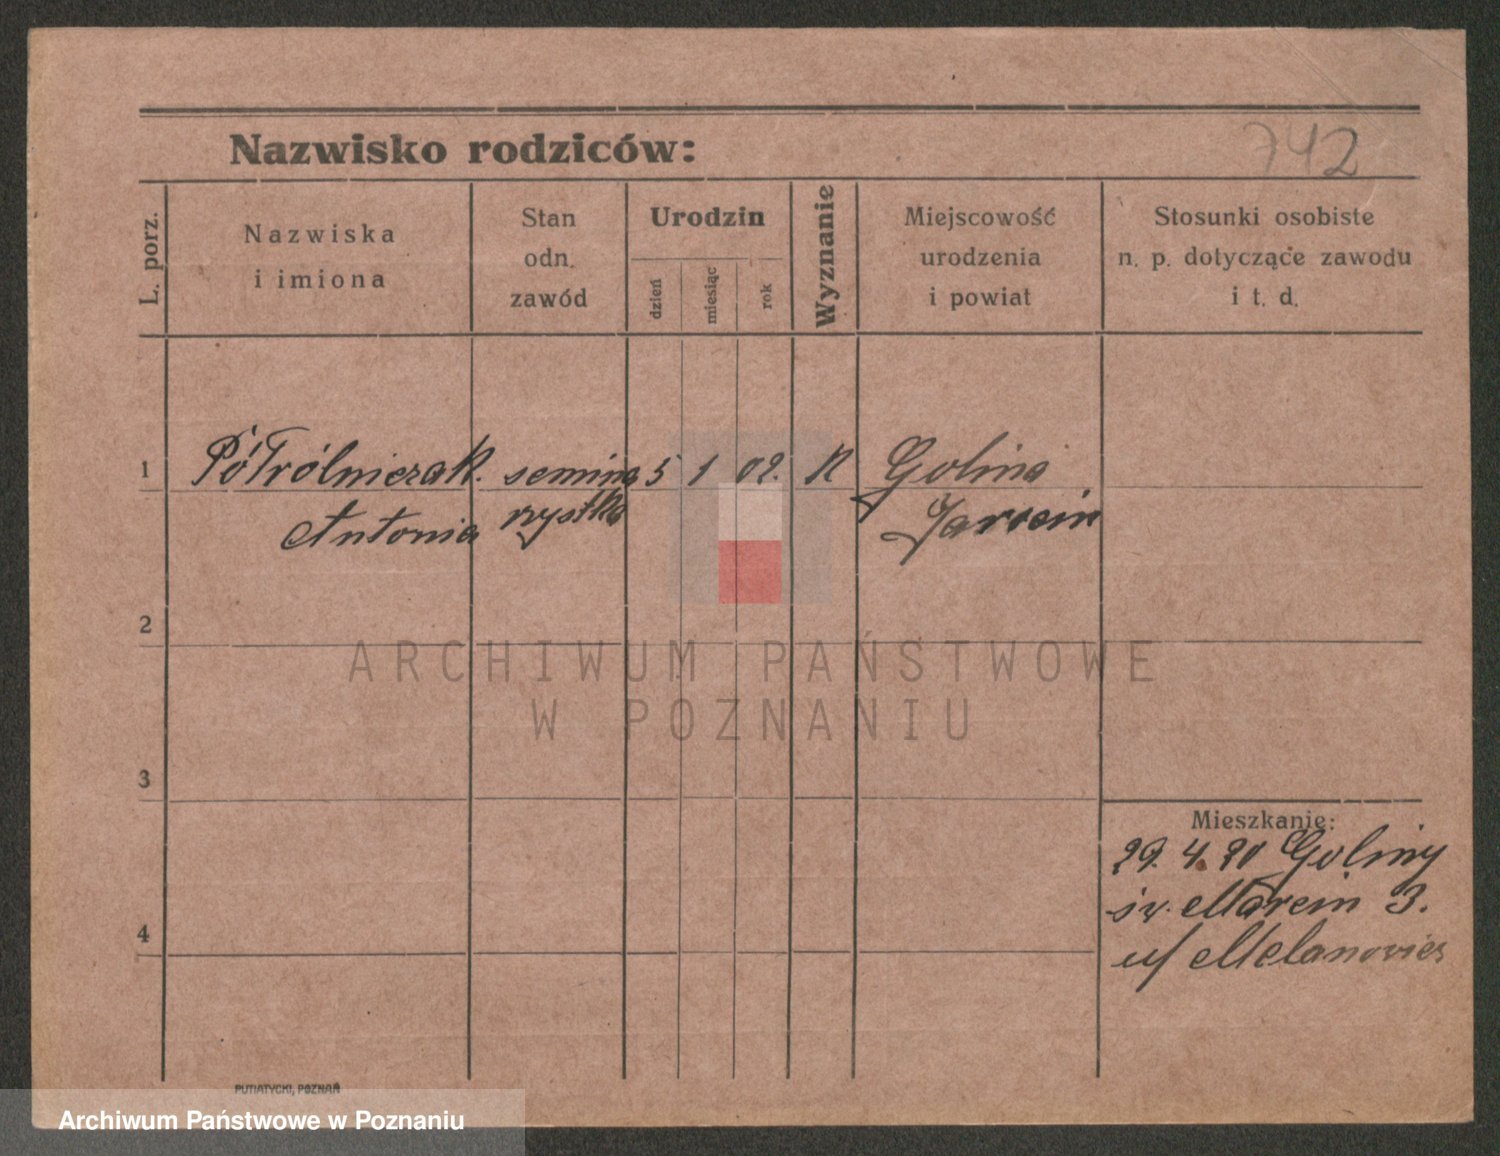 742
Nazwisko rodziców:
L. porz.
Nazwiska
i imiona
Stan
odn.
zawód
Urodzin
dzień
miesiąc
rok
Wyznanie
Miejscowość
urodzenia
i powiat
Stosunki osobiste
n. p. dotyczące zawodu
i t. d.
1 Półrólniczak. semina 5 1 02. K Golina
Antonia rzystka Jarocin
2
ARCHIWUM PAŃSTWOWE
W POZNANIU
3
Mieszkanie:
29. 4. Goliny
św. Marcin 3.
4
PUTIATYCKI, POZNAŃ
Archiwum Państwowe w Poznaniu